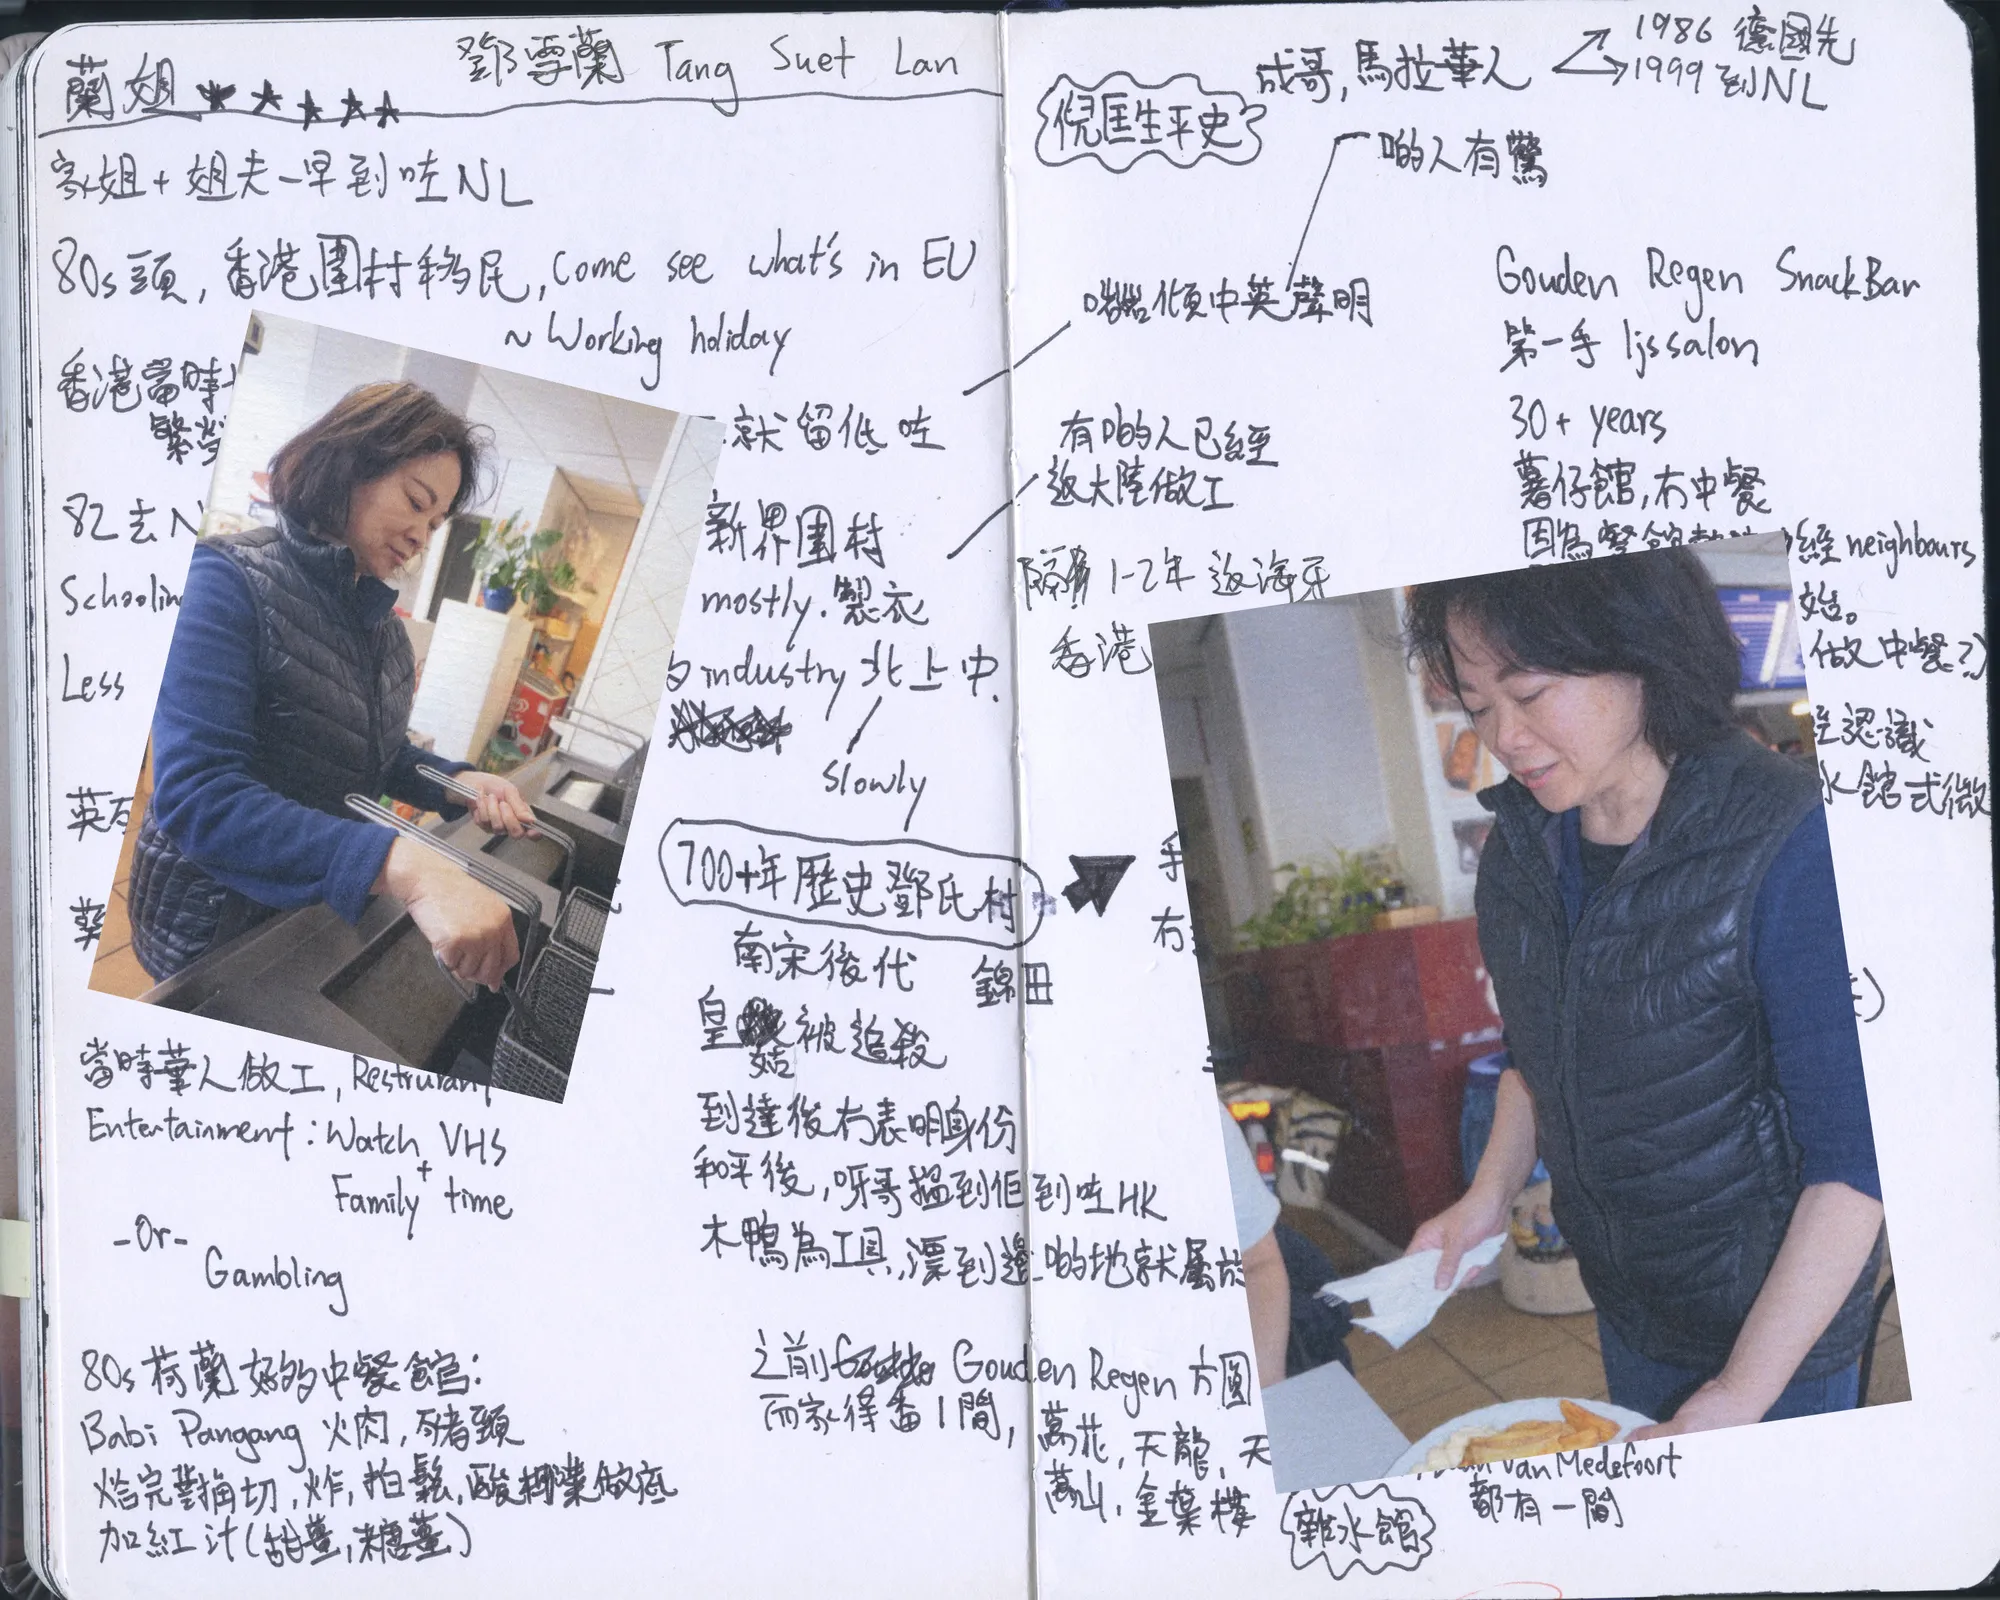 蘭姐 ★★★★★
鄧雪蘭 Tang Suet Lan
家姐+姐夫一早到咗NL
80s頭,香港圍村移民,come see what's in EU
~ Working holiday
香港當時
繁
就留低咗
82去N
新界圍村
Schoolin
mostly.製衣
Less
industry 北上中.
slowly
英
葵
700+年歷史鄧氏村
南宋後代
錦田
皇姑被追殺
到達後冇表明身份
和平後,呀哥搵到佢到咗HK
木鴨為工具,漂到邊啲地就屬於
當時華人做工,Restrurant
Entertainment:Watch VHS
+
Family time
-Or-
Gambling
80s荷蘭好多中餐館:
Babi Pangang 火肉,豬頸
烚完對掄切,炸,拍鬆,酸椰菜做底
加紅汁(甜薑,糖薑)
之前 Gouden Regen 方圓
而家得番1間,
萬花,天龍,天
萬山,金葉樓
雜水館
van Medefoort
都有一間
成哥,馬拉華人
1986 德國先
1999 到NL
倪匡生平史
啲人有驚
傾中英聲明
有啲人已經
返大陸做工
隔 1-2年 返海牙
香港
Gouden Regen SnackBar
第一手 Ijssalon
30+ years
薯仔館,冇中餐
因為餐館 經neighbours
始。
做中餐?)
認識
水館式微
手
冇